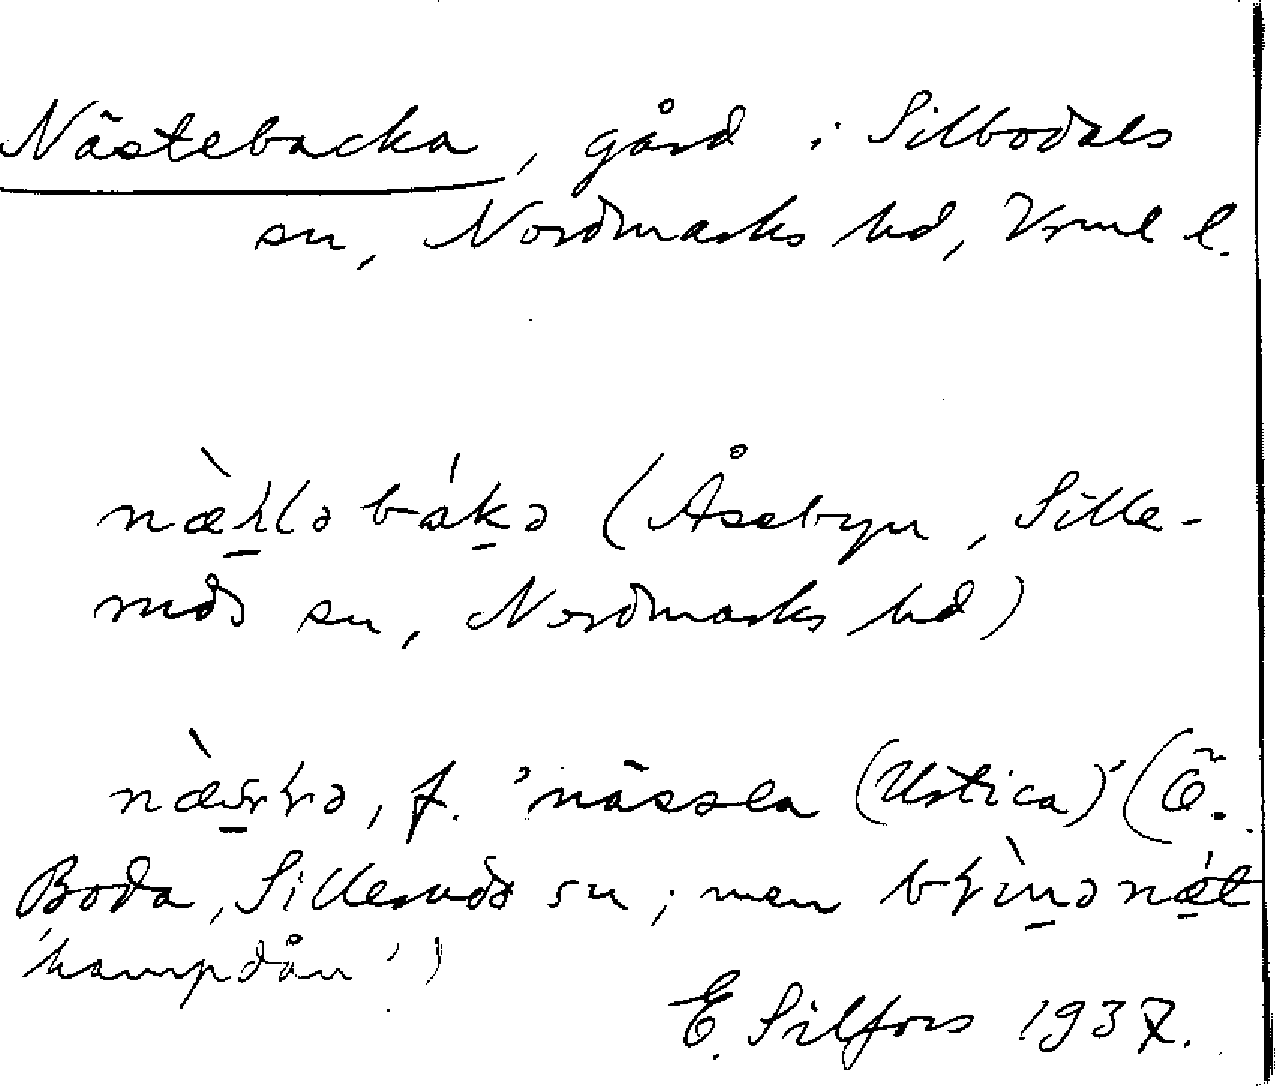 Nästebacka, gård i Silbodals
sn, Nordmarks hd, Vrml l.
(Åsebyn, Sille-
ruds sn, Nordmarks hd)
f. 'nässla (Urtica)' (Ö.
Boda, Silleruds sn; men
'hampdån')
E. Silfors 1937.